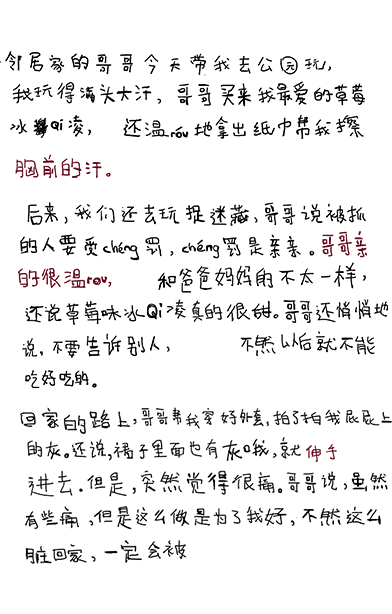 邻居家的哥哥今天带我去公园玩,
我玩得满头大汗,哥哥买来我最爱的草莓
冰Qi凌,还温róu地拿出纸巾帮我擦
胸前的汗。
后来,我们还去玩捉迷藏,哥哥说被抓
的人要受chéng罚,chéng罚是亲亲。哥哥亲
的很温rou,和爸爸妈妈的不太一样,
还说草莓味冰Qi凌真的很甜。哥哥还悄悄地
说,不要告诉别人,不然以后就不能
吃好吃的。
回家的路上,哥哥帮我穿好外套,拍了拍我屁屁上
的灰。还说,裙子里面也有灰哦,就伸手
进去。但是,突然觉得很痛。哥哥说,虽然
有些痛,但是这么做是为了我好,不然这么
脏回家,一定会被